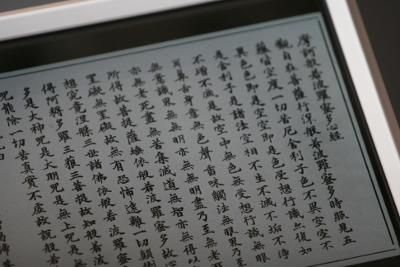 摩訶般若波羅蜜多心經
觀自在菩薩行深般若波羅蜜多時照見五
蘊皆空度一切苦厄舍利子色不異空空不
異色色即是空空即是色受想行識亦復如
是舍利子是諸法空相不生不滅不垢不淨
不增不減是故空中無色無受想行識無眼
耳鼻舌身意無色聲香味觸法無眼界乃至
無意識界無無明亦無無明盡乃至無老
亦無老死盡無苦集滅道無智亦無得以
所得故菩提薩埵依般若波羅蜜多
罣礙無罣礙故無有恐怖遠離一切顛倒
想究竟涅槃三世諸佛依般若波羅蜜
得阿耨多羅三藐三菩提故知般若波
多是大神咒是大明咒是無上咒是無
咒能除一切苦真實不虛故說般若
咒曰